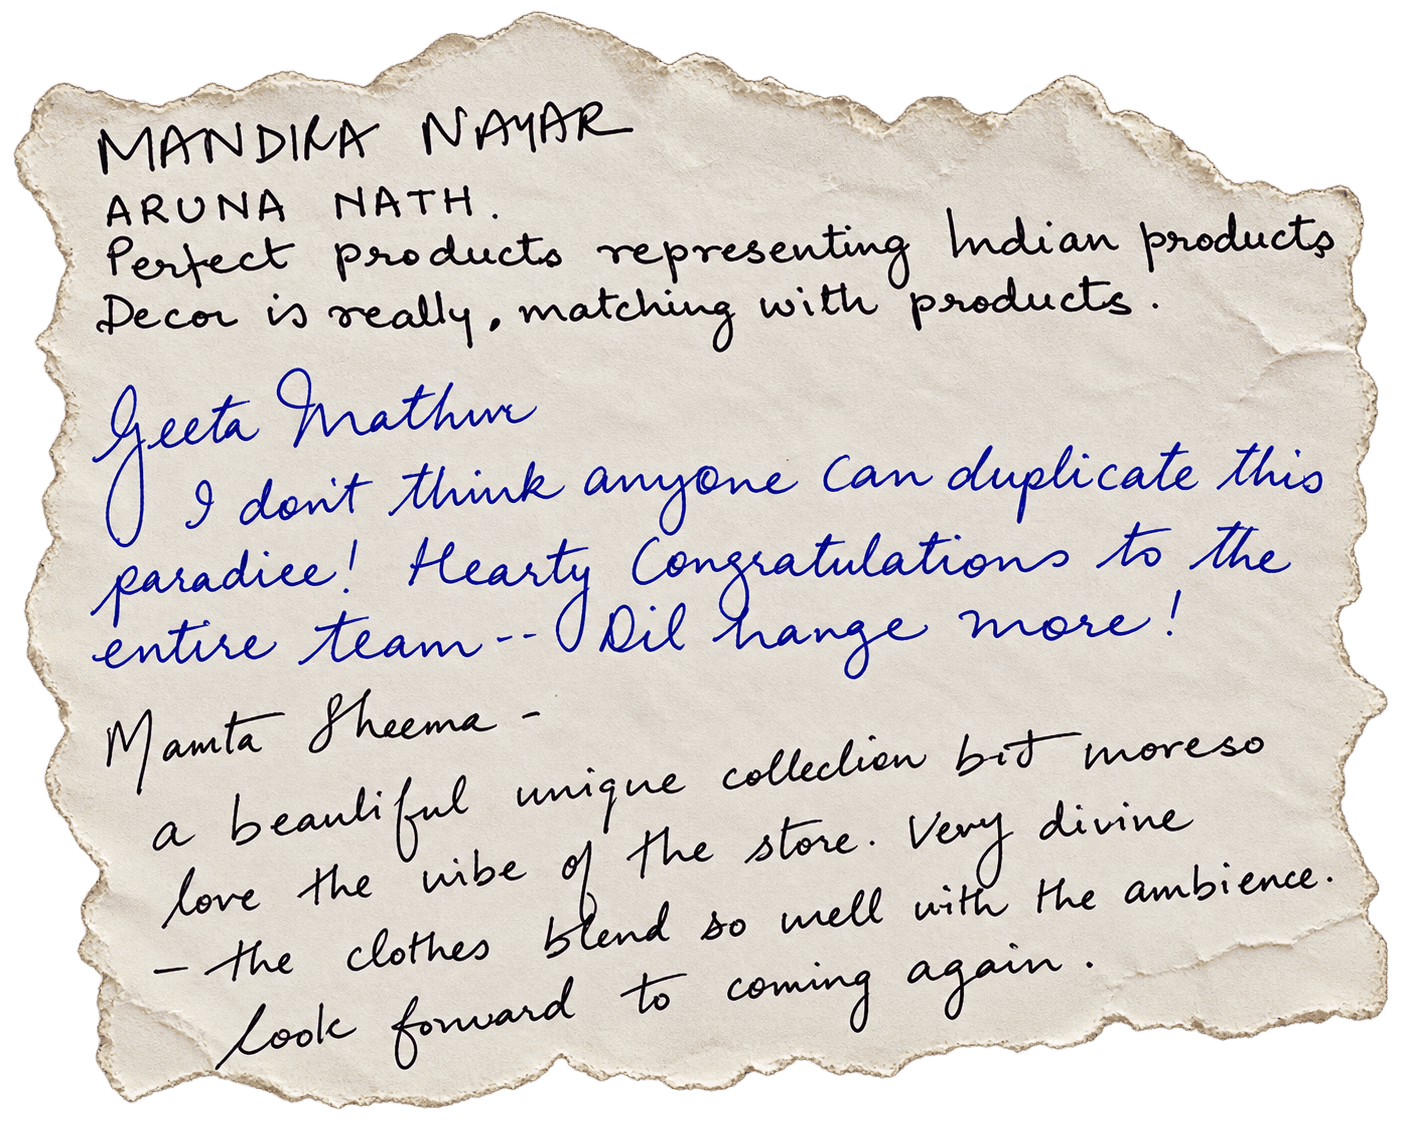 MANDIRA NAYAR
ARUNA NATH.
Perfect products representing Indian products
Decor is really, matching with products.
Geeta Mathur
I don't think anyone can duplicate this
paradice! Hearty Congratulations to the
entire team -- Dil mange more!
Mamta Sheema -
a beautiful unique collection but moreso
love the vibe of the store. Very divine
- the clothes blend so well with the ambience.
look forward to coming again.